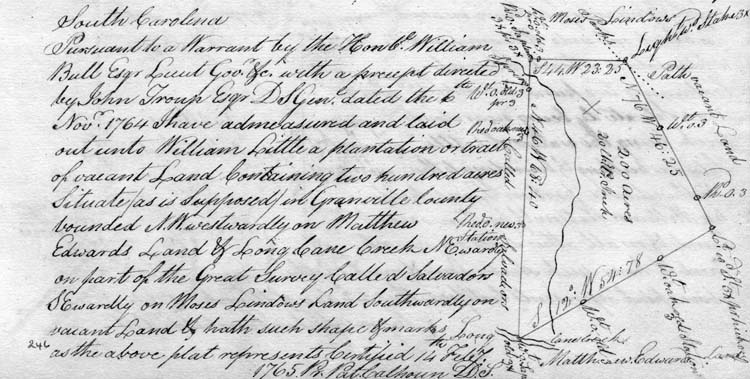 South Carolina
Pursuant to a Warrant by the Honble. William
Bull Esqr Lieut Govr. &c. with a precept directed
by John Troup Esqr D S Genl. dated the 6th
Novr. 1764 I have admeasured and laid
out unto William Little a plantation or tract
of vacant Land Containing two hundred acres
Situate (as is Supposed) in Granville County
bounded N.W. westwardly on Matthew
Edwards Land & Long Cane Creek N Ewardly
on part of the Great Survey Called Salvadors
S Ewardly on Moses Lindows Land Southwardly on
vacant Land & hath such shape & marks
as the above plat represents Certified 14th Feby
1765 Pr. Pat. Calhoun D.S.
246
Moses Lindows
Lightwd. Stake 3x
S 44 W 23:25
Path
N 76 W 46:25
vacant Land
Wt. O. 3
Wt. O. 3
200 acres
20 Chs. pr Inch
N 46 W 68:40
Called
Salvadors
Red O. new 3x
Station
S 12 W 54:78
Long
Cane Creek
Matthew Edwards Land